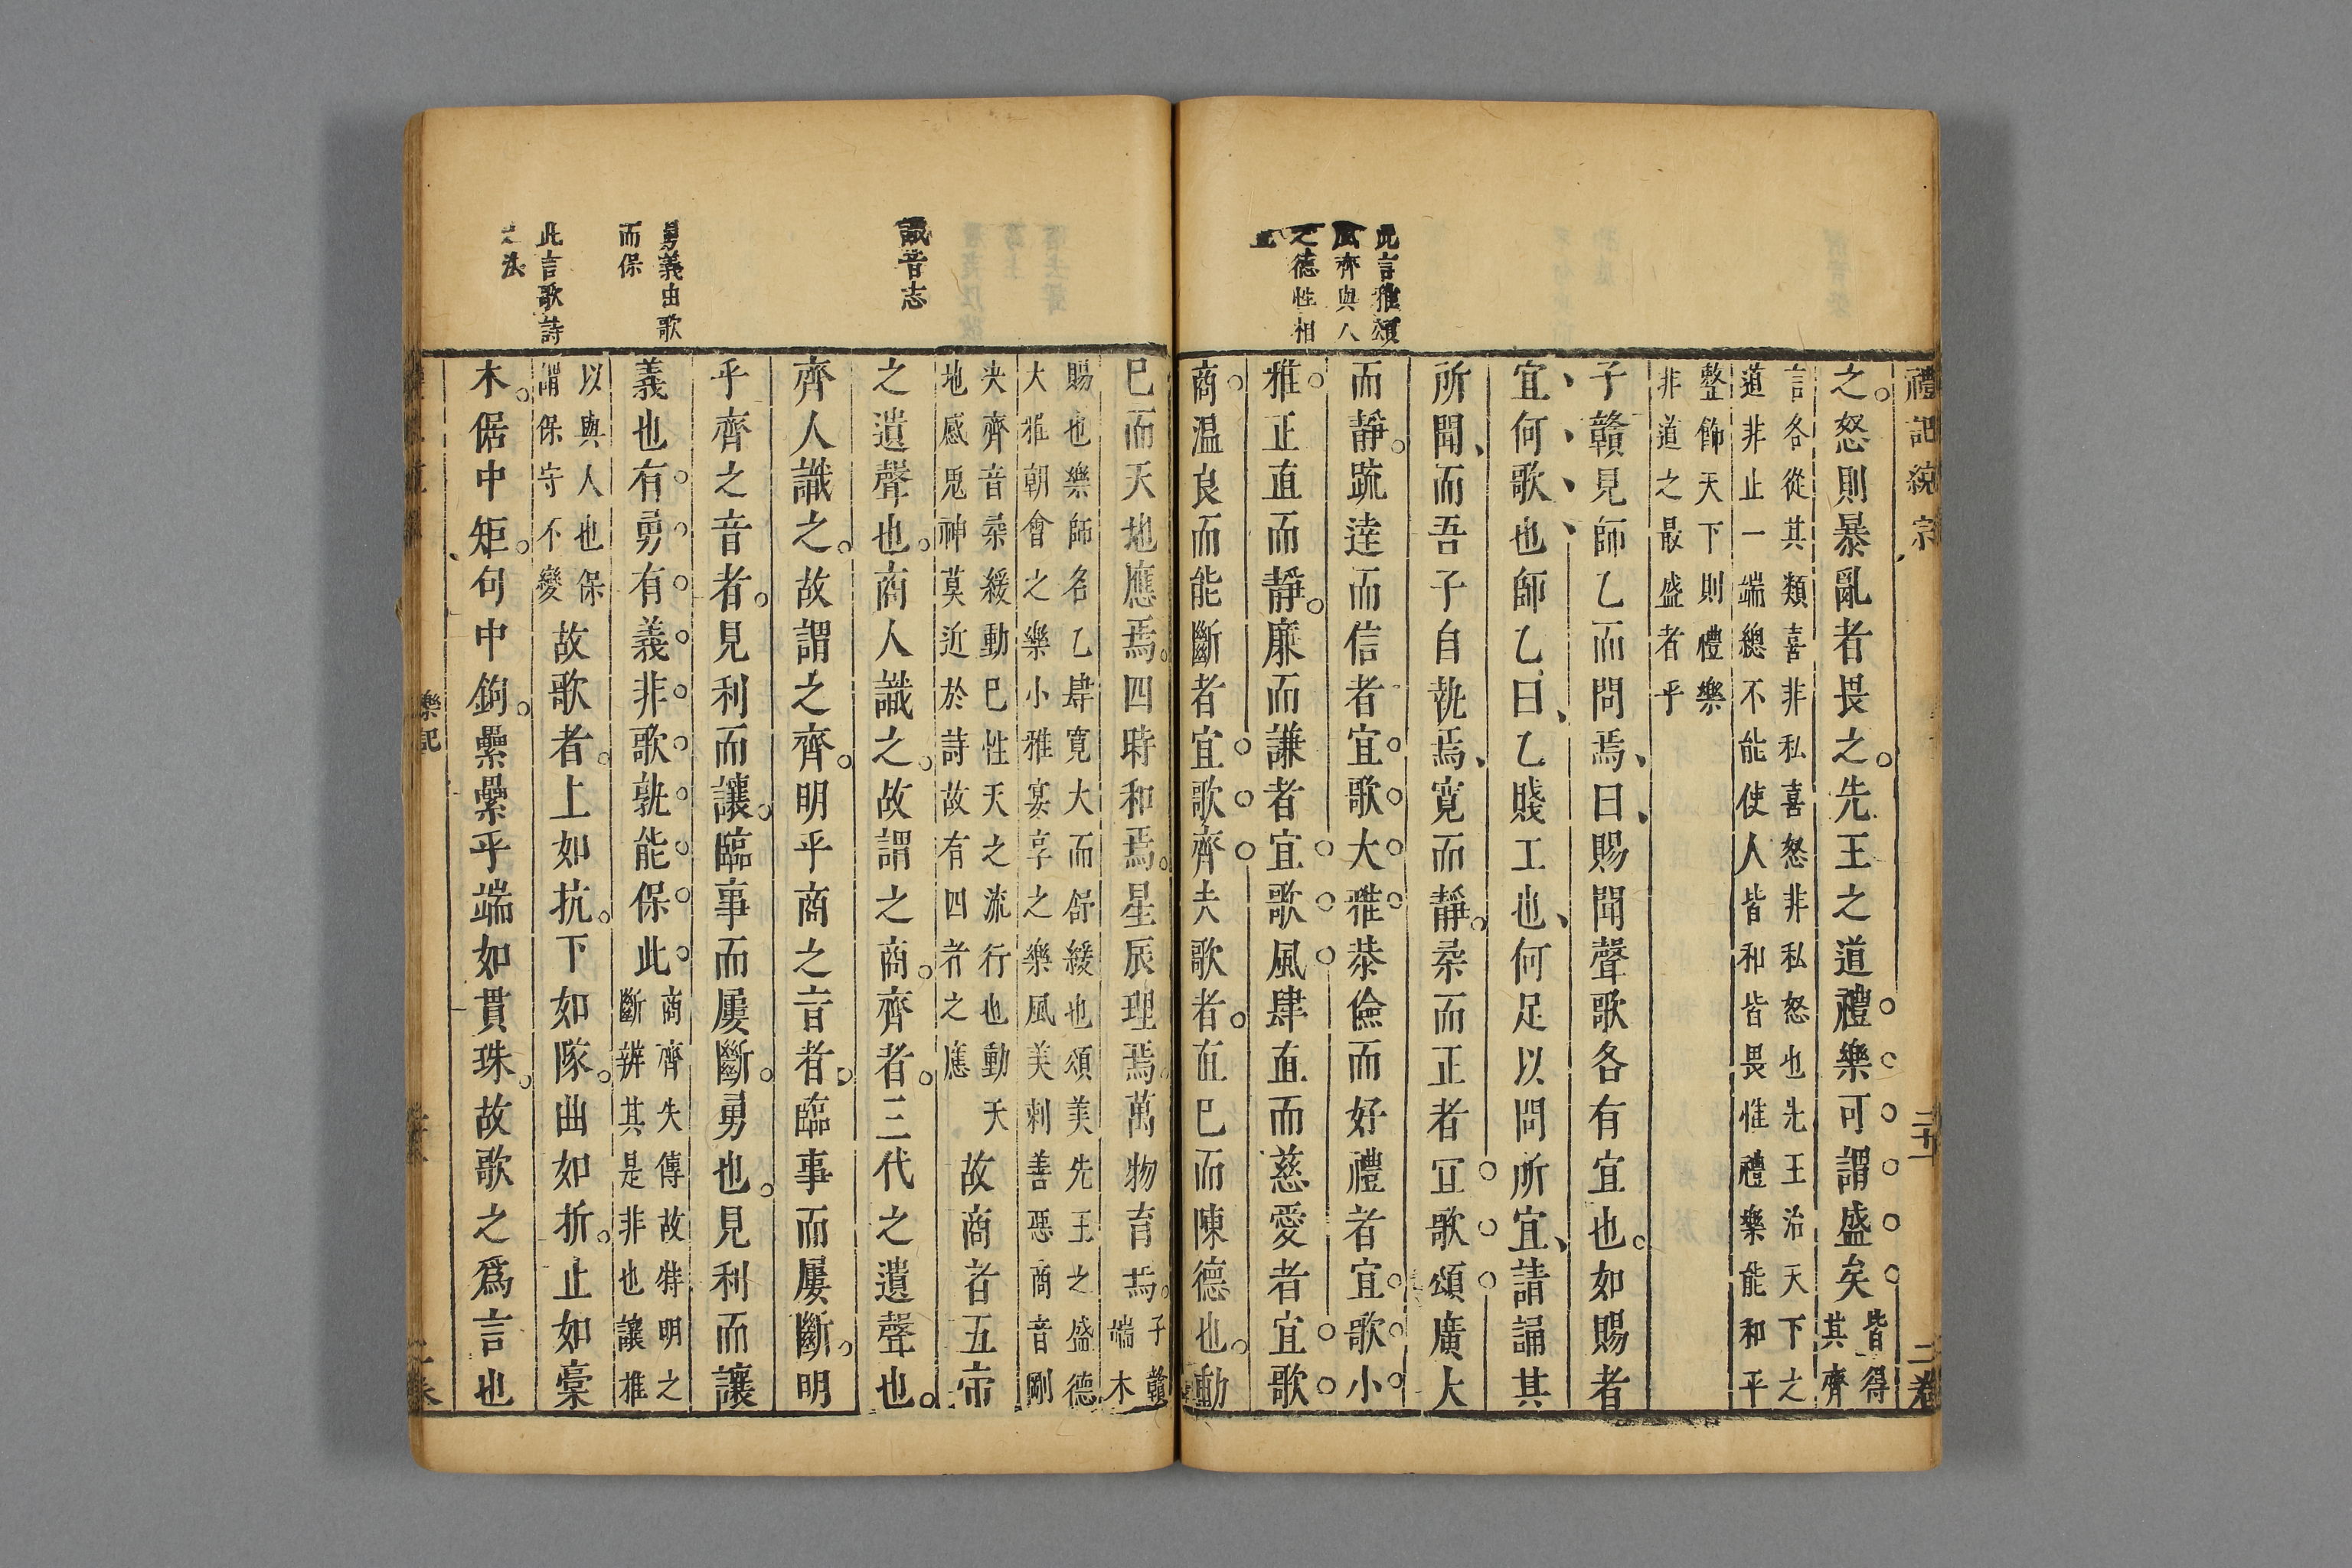 禮記綂宗
二十一
二卷
此言雅頌
風齊與人
之德性相
之怒則暴亂者畏之先王之道禮樂可謂盛矣皆得
其齊
言各從其類喜非私喜怒非私怒也先王治天下之
道非止一端總不能使人皆和皆畏惟禮樂能和平
整飾天下則禮樂
非道之最盛者乎
子贛見師乙而問焉曰賜聞聲歌各有宜也如賜者
宜何歌也師乙曰乙賤工也何足以問所宜請誦其
所聞而吾子自執焉寬而靜柔而正者宜歌頌廣大
而靜䟽達而信者宜歌大雅恭儉而好禮者宜歌小
雅正直而靜廉而謙者宜歌風肆直而慈愛者宜歌
商温良而能斷者宜歌齊夫歌者直已而陳德也動
識音志
勇義由歌
而保
此言歌詩
之法
已而天地應焉四時和焉星辰理焉萬物育焉子贛
端木
賜也樂師名乙肆寬大而舒緩也頌美先王之盛德
大雅朝會之樂小雅宴享之樂風美刺善惡商音剛
决齊音柔緩動已性天之流行也動天
地感鬼神莫近於詩故有四者之應
故商者五帝
之遺聲也商人識之故謂之商齊者三代之遺聲也
齊人識之故謂之齊明乎商之音者臨事而屢斷明
乎齊之音者見利而讓臨事而屢斷勇也見利而讓
義也有勇有義非歌孰能保此商齊失傳故特明之
斷辨其是非也讓推
以與人也保
謂保守不變
故歌者上如抗下如隊曲如折止如槀
木倨中矩句中鉤纍纍乎端如貫珠故歌之爲言也
樂記